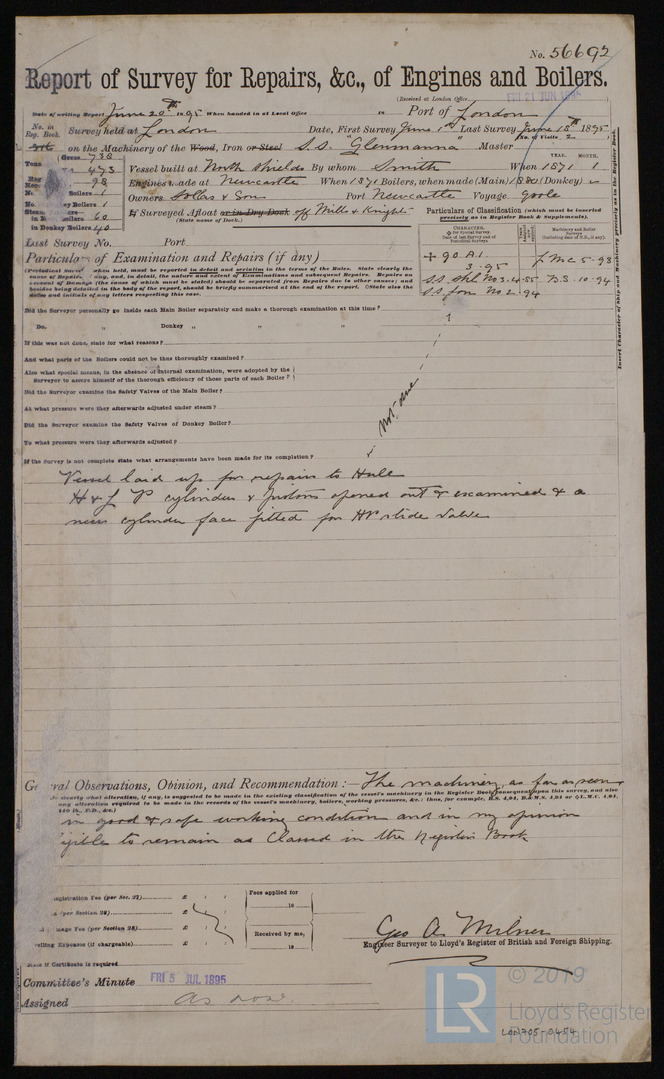 No. 56692
Report of Survey for Repairs, &c., of Engines and Boilers.
(Received at London Office FRI 21 JUN 1895
Date of writing Report June 20th 1895 When handed in at Local Office 18 Port of London
No. in Reg. Book. Survey held at London Date, First Survey June 1st Last Survey June 15th 1895
(No. of Visits 2
on the Machinery of the Wood, Iron or Steel S.S. Glenmanna Master
Tons Gross 738
473
98
YEAR. MONTH.
Vessel built at North Shields By whom Smith When 1871 1
Engines made at Newcastle When 1871 Boilers, when made (Main) (Donkey)
Boilers 1
Boilers 1
in Boilers 60
in Donkey Boilers 40
Owners & Son Port Newcastle Voyage Goole
If Surveyed Afloat or in Dry Dock off Mills & Knight
(State name of Dock.)
Particulars of Classification (which must be inserted precisely as in Register Book & Supplements).
CHARACTER.
for Special Survey
Date of last Survey and of Periodical Surveys
Machinery and Boiler Surveys
(including date of N.B., if any).
+ 90 A.1.
3.95
L.M.C 5-93
B.S. 10-94
S.S. No 2-94
Last Survey No. Port
Particulars of Examination and Repairs (if any)
(Periodical Surveys, when held, must be reported in detail and seriatim in the terms of the Rules. State clearly the
cause of Repairs, if any, and, in detail, the nature and extent of Examinations and subsequent Repairs. Repairs on
account of Damage (the cause of which must be stated) should be separated from Repairs due to other causes; and
besides being detailed in the body of the report, should be briefly summarised at the end of the report. State also the
dates and initials of any letters respecting this case.
Did the Surveyor personally go inside each Main Boiler separately and make a thorough examination at this time?
Do. " Donkey " " "
If this was not done, state for what reasons?
And what parts of the Boilers could not be thus thoroughly examined?
Also what special means, in the absence of internal examination, were adopted by the
Surveyor to assure himself of the thorough efficiency of those parts of each Boiler?
Did the Surveyor examine the Safety Valves of the Main Boiler?
At what pressure were they afterwards adjusted under steam?
Did the Surveyor examine the Safety Valves of Donkey Boiler?
To what pressure were they afterwards adjusted?
If the Survey is not complete state what arrangements have been made for its completion?
Not due
Vessel laid up for repairs to Hull
H & L P cylinders & pistons opened out & examined & a
new cylinder face fitted for HP slide valve
Insert Character of Ship and Machinery precisely as in the Register Book.
General Observations, Opinion, and Recommendation:— The machinery, as far as seen
clearly what alteration, if any, is suggested to be made in the existing classification of the vessel's machinery in the Register Book, consequent upon this survey, and also
any alteration required to be made in the records of the vessel's machinery, boilers, working pressures, &c.: thus, for example, B.S. 4,94, B.&M.S. 4,94 or L.M.C. 4,94,
140 lb., F.D., &c.)
in good & safe working condition and in my opinion
eligible to remain as Classed in the Register Book
Registration Fee (per Sec. 27) £ : :
(per Section 28) £ : :
Damage Fee (per Section 28) £ : :
Travelling Expenses (if chargeable) £ : :
Fees applied for
18
Received by me,
18
Geo A. Milner
Engineer Surveyor to Lloyd's Register of British and Foreign Shipping.
State if Certificate is required
Committee's Minute FRI 5 JUL 1895
Assigned as now
LR
© 2019
Lloyd's Register
Foundation
LON705-0454